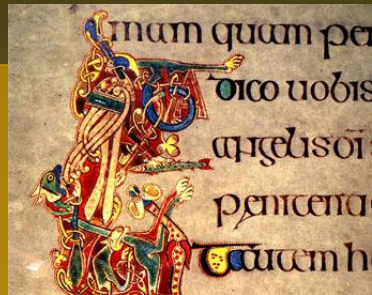 mam quam per
dico uobis
angelis di
penitenti
autem h